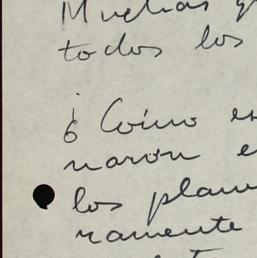 Muchas
todos los
¿Cómo es
naron e
los plane
ramente